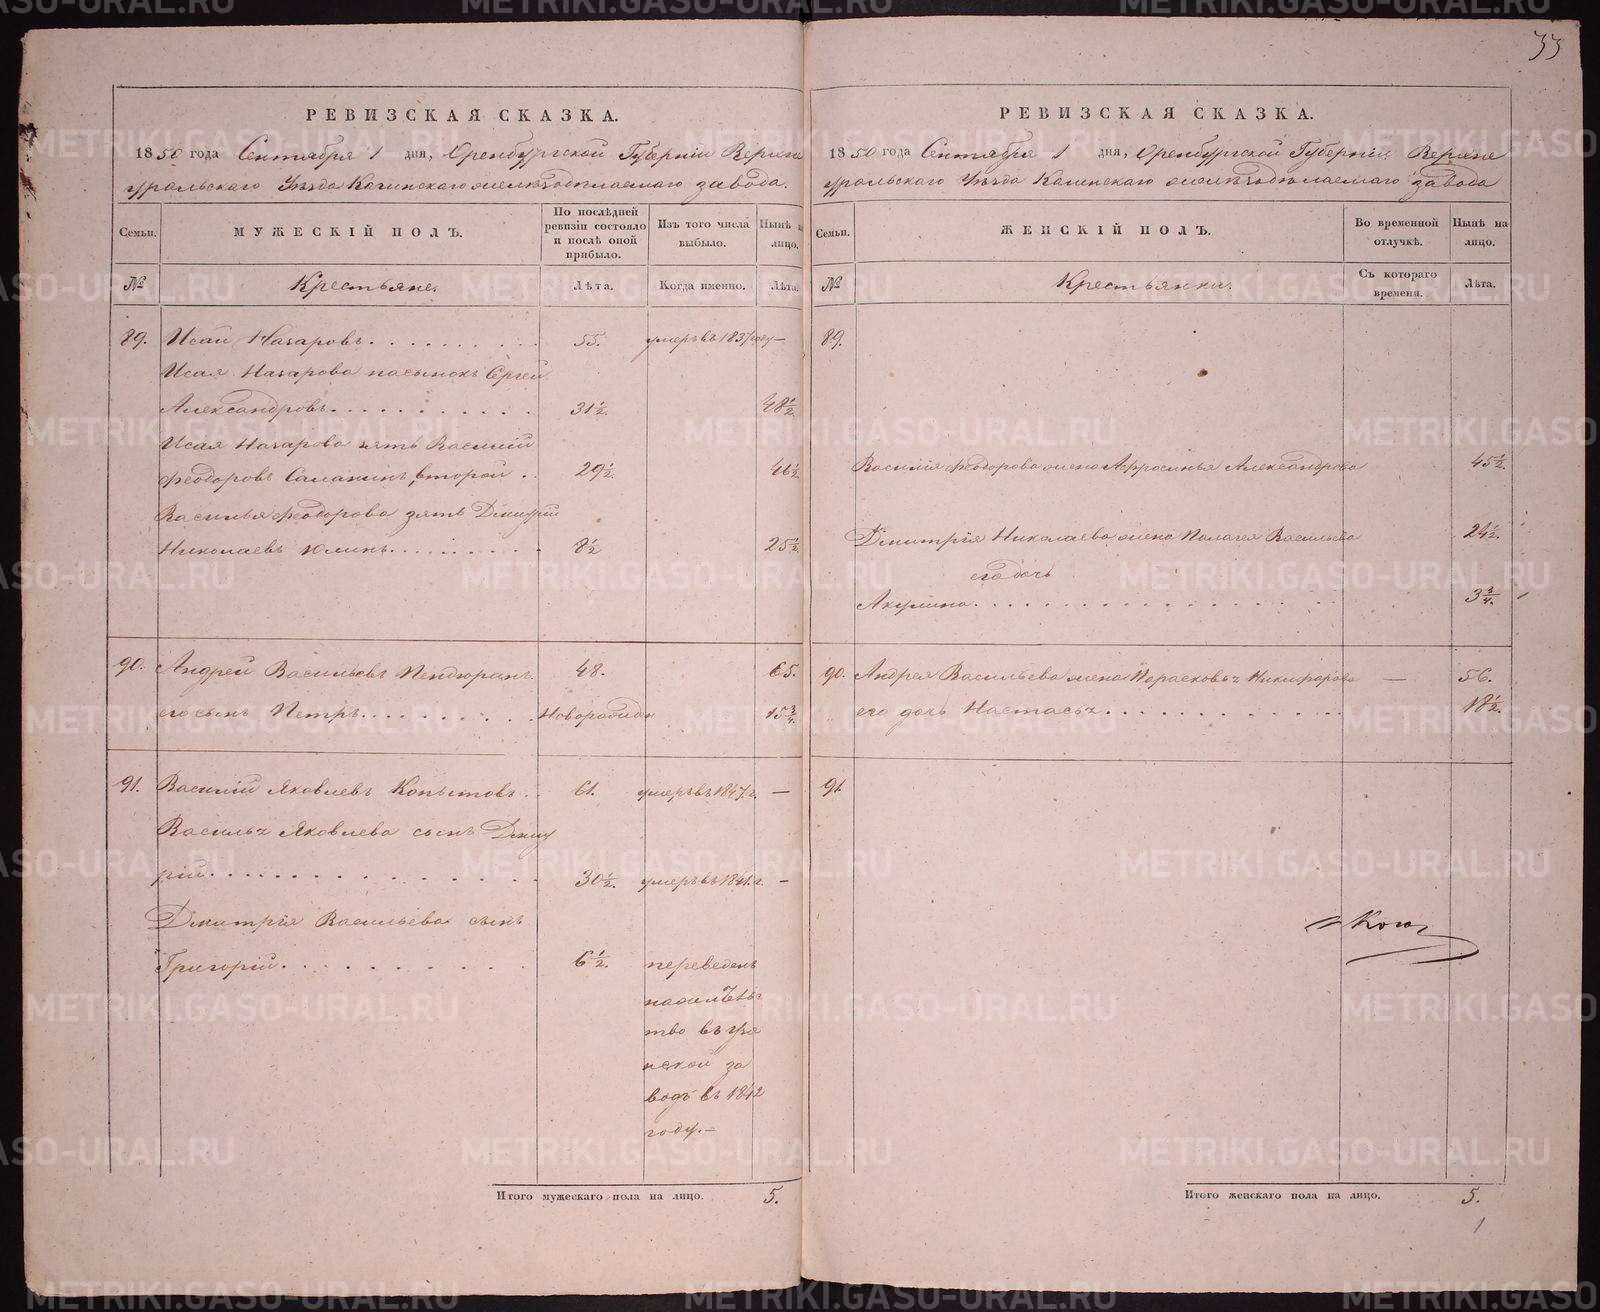 33
РЕВИЗСКАЯ СКАЗКА.
1850 года Сентября 1 дня, Оренбургской Губерніи Верхне
уральскаго Уѣзда Кагинскаго желѣзодѣлаемаго завода.
Семьи.
МУЖЕСКІЙ ПОЛЪ.
По послѣдней ревизіи состояло и послѣ оной прибыло.
Изъ того числа выбыло.
Нынѣ на лицо.
№
Крестьяне.
Лѣта.
Когда именно.
Лѣта.
89. Исай Назаровъ. 55. умеръ въ 1837 году —
Исая Назарова пасынокъ Сергей
Александровъ. 31½. 48½
Исая Назарова зять Василій
Феодоровъ второй. 29½ 46½
Василья Феодорова зять Дмитрій
Николаевъ Юлинъ. 8½ 25½
90. Андрей Васильевъ Пендюринъ 48. 65.
его сынъ Петръ. Новорожден 15¾.
91. Василій Яковлевъ Копытовъ. 61. умеръ въ 1847 г. —
Василья Яковлева сынъ Дмит
рій. 30½. умеръ въ 1841 г. —
Дмитрія Васильева сынъ
Григорій. 6½. переведенъ
въ Узя
нской за
водъ въ 1842
году. —
Итого мужескаго пола на лицо. 5.
РЕВИЗСКАЯ СКАЗКА.
1850 года Сентября 1 дня, Оренбургской Губерніи Верхне
уральскаго Уѣзда Кагинскаго желѣзодѣлаемаго завода
Семьи.
ЖЕНСКІЙ ПОЛЪ.
Во временной отлучкѣ.
Нынѣ на лицо.
№
Крестьянки.
Съ котораго времени.
Лѣта.
89.
Василія Феодорова жена Афросинья Александрова 45½.
Дмитрія Николаева жена Палагея Васильева 24½.
его дочь
Акулина. 3¾.
90. Андрея Васильева жена Парасковья Никифорова — 56.
его дочь Настасья. 18½.
91
Итого женскаго пола на лицо. 5.
METRIKI.GASO-URAL.RU